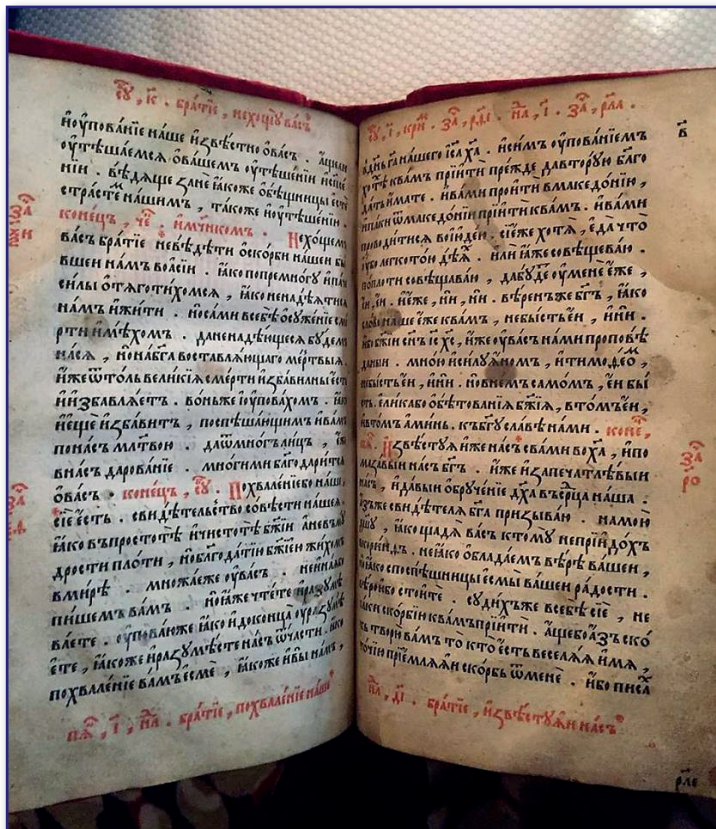 братїе, нехощꙋ васъ
й҆ᲂу҆пова́нїе на́ше и҆звѣ́стно ѡ҆ва́съ. а҆́щели
ᲂу҆тѣша́емся ѡ҆ва́шемъ ᲂу҆тѣше́нїи
нїи. вѣ́дѧще занѐ ꙗ҆́коже ѻ҆́бещницы є҆стѐ
стрⷭ҇те́мъ на́шимъ, та́коже и҆ ᲂу҆тѣше́нїю.
коне́цъ, и҆ мч҃нкомъ. Нехо́щемъ
ва́съ бра́тїе невѣ́дѣти ѡ҆ско́рби на́шей бы́
вшей на́мъ воа҆сі́и. ꙗ҆́кѡ попремно́гꙋ и҆па́че
си́лы ѡ҆тѧготи́хомсѧ, ꙗ҆́кѡ ненадѣ́ѧтисѧ
на́мъ и҆жи́ти. но са́ми всебѣ̀ ѡ҆сꙋжде́нїе сме́
рти и҆мѣ́хомъ. да ненадѣ́ющесѧ бꙋ́демъ
насѧ̀, но на бг҃а воставлѧ́ющаго ме́ртвыѧ.
и҆́же ѿто́ль вели́кїѧ сме́рти и҆зба́вилъ ны є҆́сть
и҆ и҆збавлѧ́етъ. во́ньже и҆ ᲂу҆пова́хомъ. ꙗ҆́кѡ
и҆ є҆щѐ и҆зба́витъ, поспѣша́ющимъ и҆ ва́мъ
пона́съ мл҃твою. да ѿ мно́гъ ли́цъ, є҆́же
внасъ дарова́нїе. мно́гими благодари́тсѧ
ѡ҆ва́съ. коне́цъ, Похвале́нїе бо на́ше
сїѐ є҆́сть. свидѣ́тельство со́вѣсти на́шеѧ.
ꙗ҆́кѡ въ простотѣ̀ и҆ чистотѣ̀ бж҃їи а҆ не въ мꙋ́
дрости пло́ти, но бл҃года́тїю бж҃їею жи́хомъ
в ми́рѣ. мно́жае же ᲂу҆ ва́съ. не и҆на́ѧ бо
пи́шемъ ва́мъ. но ꙗ҆́же чте́те и҆ разꙋмѣ́
ва́ете. ᲂу҆пова́нже ꙗ҆́кѡ и҆ до конца̀ ᲂу҆разꙋмѣ́
ете, ꙗ҆́коже и҆ разꙋмѣ́сте на́съ ѿча́сти. ꙗ҆́кѡ
похвале́нїе ва́мъ є҆смѐ, ꙗ҆́коже и҆ вы̀ на́мъ,
бра́тїе, похвале́нїе на́ше
в҃
в дн҃ь гд҇а на́шего і҆с҃а хр҇та̀. и҆ си́мъ ᲂу҆пова́нїемъ
хотѣ́хъ к ва́мъ прїитѝ пре́жде да втору́ю бл҃го
да́ть и҆́мате. и҆ ва́ми проитѝ в македо́нїю,
и҆ па́ки ѿ македо́нїи прїитѝ к ва́мъ. и҆ ва́ми
проводи́тисѧ во і҆ꙋде́ю. сїе́же хотѧ̀, є҆да̀ что̀
ᲂу҆́бо легкото́ю дѣ́ѧхъ. и҆лѝ ꙗ҆̀же совѣщева́ю.
по пло́ти совѣщава́ю, да бꙋ́детъ ᲂу҆ менѐ є҆́же,
є҆́и, є҆́и. и҆ є҆́же, нѝ, нѝ. вѣ́ренъ же бг҃ъ, ꙗ҆́кѡ
сло́во на́ше є҆́же к ва́мъ, не бы́сть є҆́и, и҆ нѝ.
и҆́бо бж҃їи сн҃ъ і҆с҃ хр҇то́съ, и҆́же ᲂу҆ ва́съ на́ми проповѣ́
данный. мно́ю и҆ силꙋа́номъ, и҆ тимоѳе́омъ,
не бы́сть є҆́и, и҆ нѝ. но в не́мъ само́мъ, є҆́и бы́
сть. є҆ли́ка бо ѡ҆бѣтова́нїѧ бж҃їѧ, в то́мъ є҆́и,
и҆ в то́мъ а҆ми́нь. къ бг҃ꙋ сла́вѣ на́ми. коне́цъ,
И҆звѣстꙋ́ѧ и҆́же на́съ с ва́ми во хр҇та̀, и҆ по
ма́завый на́съ бг҃ъ. и҆́же и҆ запечатлѣ́вый
на́съ, и҆ да́вый ѡ҆брꙋче́нїе дх҃а въ срⷣца̀ на́ша.
а҆́зъ же свидѣ́телѧ бг҃а призыва́ю. на мою̀
дш҃ꙋ, ꙗ҆́кѡ щадѧ̀ ва́съ к томꙋ̀ не прїидо́хъ
в кори́нѳъ. не ꙗ҆́кѡ ѡ҆блада́емъ вѣ́рѣ ва́шей,
но ꙗ҆́кѡ споспѣ́шницы є҆смы̀ ва́шей ра́дости.
вѣ́рою бо стоитѐ. сꙋди́хъ же всебѣ̀ сїѐ, не
па́ки ско́рбїю к ва́мъ прїитѝ. а҆́ще бо а҆́зъ ско́
рбь творю̀ ва́мъ то̀ кто̀ є҆́сть веселѧ́ѧ и҆ мѧ̀,
то́чїю прїе́млѧй ско́рбь ѿ менѐ. и҆́бо писа́хъ
бра́тїе, и҆звѣстꙋ́ѧй на́съ
рл҃е